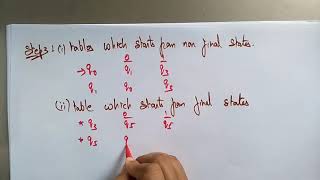 Step3: (i) tables which starts from non final states.
0 1
→q0 q1 q3
q1 q0 q3
(ii) table which starts from final states
0 1
* q3 q5 q5
* q5 q